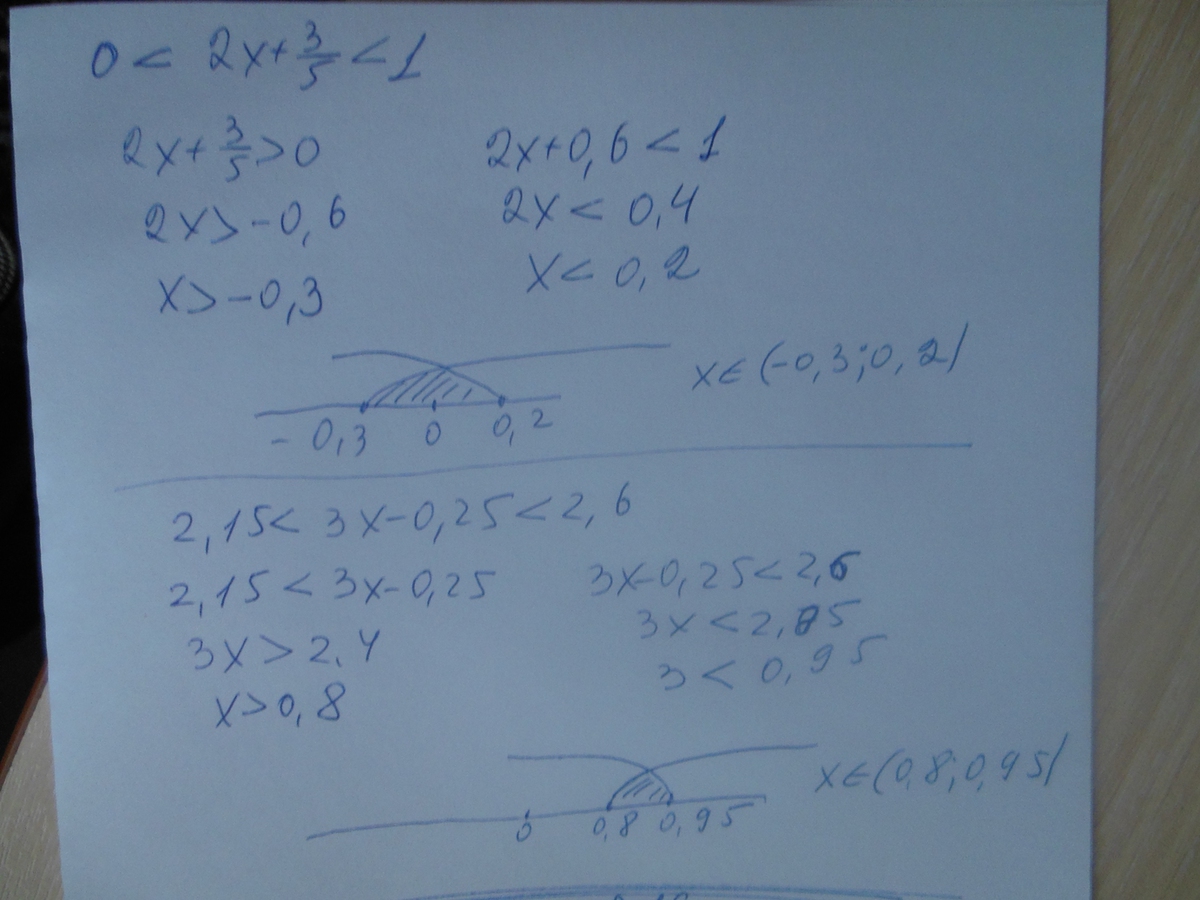 0 < 2x + 3/5 < 1
2x + 3/5 > 0
2x > -0,6
x > -0,3
2x + 0,6 < 1
2x < 0,4
x < 0,2
-0,3 0 0,2
x ∈ (-0,3; 0,2)
2,15 < 3x - 0,25 < 2,6
2,15 < 3x - 0,25
3x > 2,4
x > 0,8
3x - 0,25 < 2,6
3x < 2,85
3 < 0,95
0 0,8 0,95
x ∈ (0,8; 0,95)